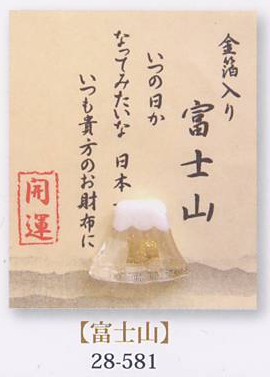 金箔入り
富士山
いつの日か
なってみたいな 日本一
いつも貴方のお財布に
開運
【富士山】
28-581